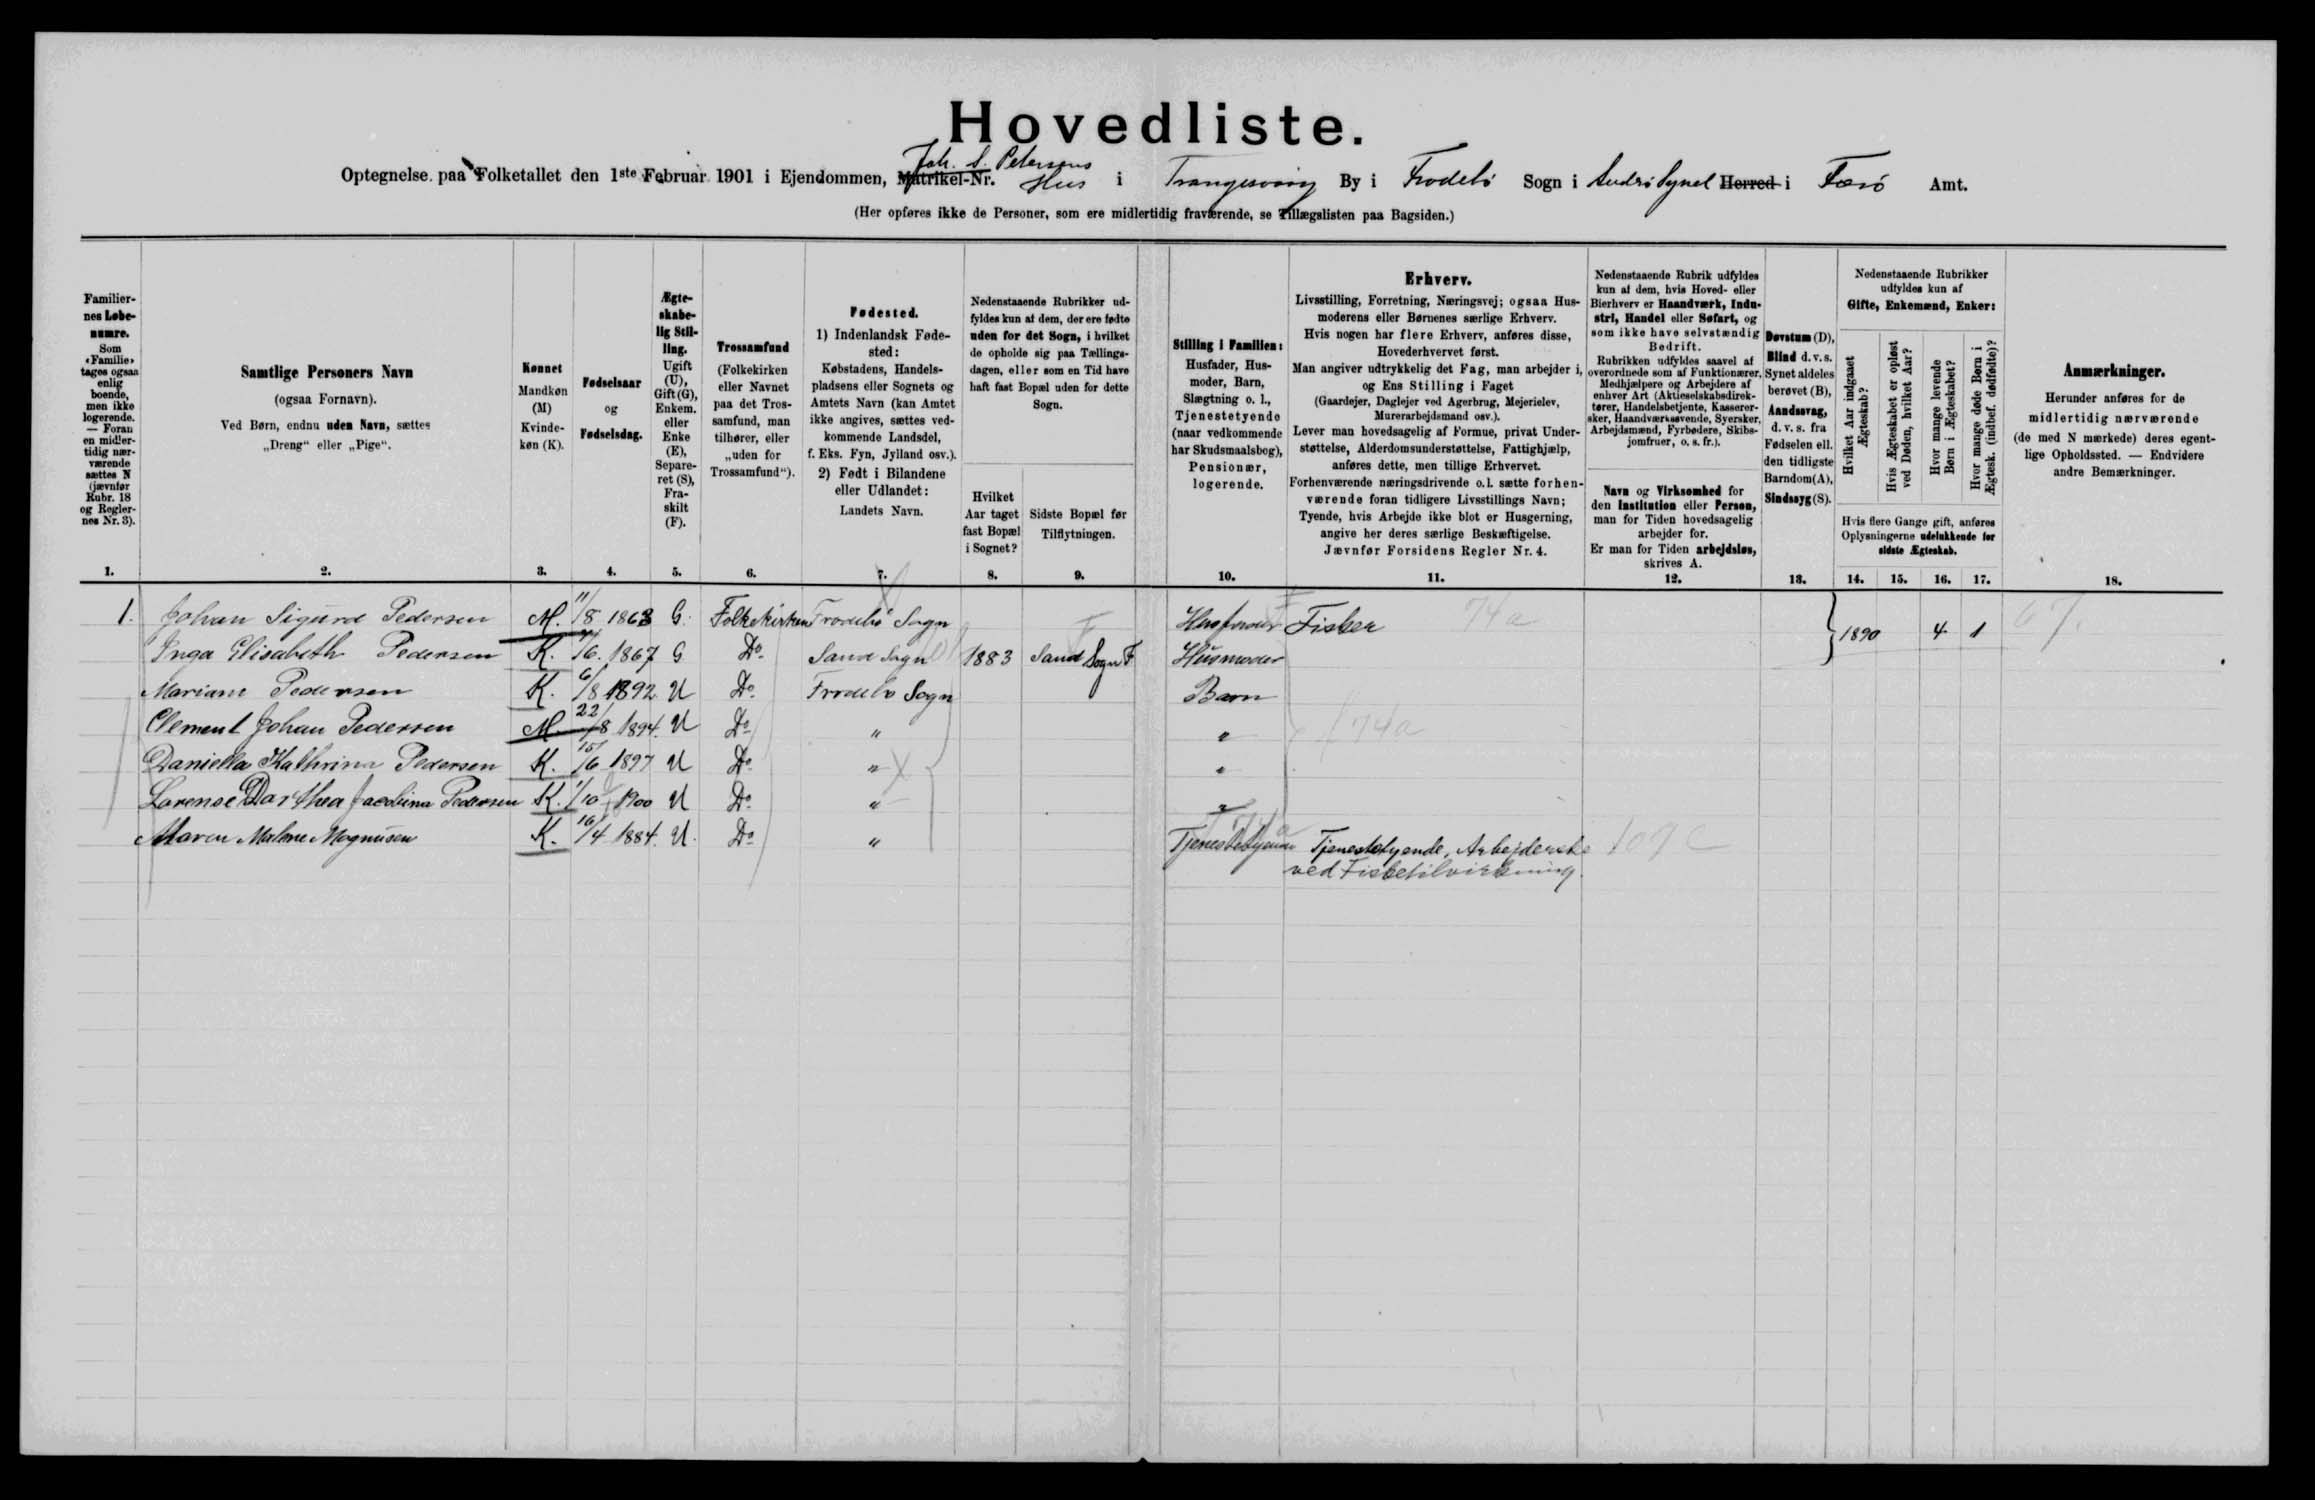 Hovedliste.
Optegnelse paa Folketallet den 1ste Februar 1901 i Ejendommen, Matrikel-Nr. Joh. S. Petersens Hus i Trangisvaag By i Frodebø Sogn i Suderø Syssel Herred i Færø Amt.
(Her opføres ikke de Personer, som ere midlertidig fraværende, se Tillægslisten paa Bagsiden.)
Familiernes Løbenumre.
Som «Familie» tages ogsaa enlig boende, men ikke logerende. — Foran en midlertidig nærværende sættes N (jævnfør Rubr. 18 og Reglernes Nr. 3).
Samtlige Personers Navn
(ogsaa Fornavn).
Ved Børn, endnu uden Navn, sættes
„Dreng“ eller „Pige“.
Kønnet
Mandkøn (M)
Kvindekøn (K).
Fødselsaar
og
Fødselsdag.
Ægteskabelig Stilling.
Ugift (U), Gift (G), Enkem. eller Enke (E), Separeret (S), Fraskilt (F).
Trossamfund
(Folkekirken eller Navnet paa det Trossamfund, man tilhører, eller „uden for Trossamfund“).
Fødested.
1) Indenlandsk Fødested:
Købstadens, Handelspladsens eller Sognets og Amtets Navn (kan Amtet ikke angives, sættes vedkommende Landsdel, f. Eks. Fyn, Jylland osv.).
2) Født i Bilandene eller Udlandet:
Landets Navn.
Nedenstaaende Rubrikker udfyldes kun af dem, der ere fødte uden for det Sogn, i hvilket de opholde sig paa Tællingsdagen, eller som en Tid have haft fast Bopæl uden for dette Sogn.
Hvilket Aar taget fast Bopæl i Sognet?
Sidste Bopæl før Tilflytningen.
Stilling i Familien:
Husfader, Husmoder, Barn, Slægtning o. l., Tjenestetyende (naar vedkommende har Skudsmaalsbog), Pensionær, logerende.
Erhverv.
Livsstilling, Forretning, Næringsvej; ogsaa Husmoderens eller Børnenes særlige Erhverv.
Hvis nogen har flere Erhverv, anføres disse, Hovederhvervet først.
Man angiver udtrykkelig det Fag, man arbejder i, og Ens Stilling i Faget
(Gaardejer, Daglejer ved Agerbrug, Mejerielev, Murerarbejdsmand osv.).
Lever man hovedsagelig af Formue, privat Understøttelse, Alderdomsunderstøttelse, Fattighjælp, anføres dette, men tillige Erhvervet.
Forhenværende næringsdrivende o.l. sætte forhenværende foran tidligere Livsstillings Navn;
Tyende, hvis Arbejde ikke blot er Husgerning, angive her deres særlige Beskæftigelse.
Jævnfør Forsidens Regler Nr. 4.
Nedenstaaende Rubrik udfyldes kun af dem, hvis Hoved- eller Bierhverv er Haandværk, Industri, Handel eller Søfart, og som ikke have selvstændig Bedrift.
Rubrikken udfyldes saavel af overordnede som af Funktionærer, Medhjælpere og Arbejdere af enhver Art (Aktieselskabsdirektører, Handelsbetjente, Kasserersker, Haandværkssvende, Syersker, Arbejdsmænd, Fyrbødere, Skibsjomfruer, o. s. fr.).
Navn og Virksomhed for den Institution eller Person, man for Tiden hovedsagelig arbejder for.
Er man for Tiden arbejdsløs, skrives A.
Døvstum (D), Blind d. v. s. Synet aldeles berøvet (B), Aandssvag, d. v. s. fra Fødselen ell. den tidligste Barndom (A), Sindssyg (S).
Nedenstaaende Rubrikker udfyldes kun af
Gifte, Enkemænd, Enker:
Hvilket Aar indgaaet Ægteskab?
Hvis Ægteskabet er opløst ved Døden, hvilket Aar?
Hvor mange levende Børn i Ægteskabet?
Hvor mange døde Børn i Ægtesk. (indbef. dødfødte)?
Hvis flere Gange gift, anføres Oplysningerne udelukkende for sidste Ægteskab.
Anmærkninger.
Herunder anføres for de midlertidig nærværende (de med N mærkede) deres egentlige Opholdssted. — Endvidere andre Bemærkninger.
1. 2. 3. 4. 5. 6. 7. 8. 9. 10. 11. 12. 13. 14. 15. 16. 17. 18.
1. Johan Sigurd Pedersen M. 11/8 1863 G. Folkekirken Frodebø Sogn Husfader Fisker 74a 1890 4 1 67.
Inga Elisabeth Pedersen K. /6. 1867 G Do Sand Sogn 1883 Sand Sogn F Husmoder
Mariane Pedersen K. 6/8 1892 U Do Frodebø Sogn Barn
Clement Johan Pedersen M. 22/8 1894. U Do " " 74a
Daniella Kathrina Pedersen K. 15/6 1897 U Do " "
Lorense Dorthea Jacobina Pedersen K. 1/10 1900 U Do " "
Maren Malene Mognusen K. 16/4 1884. U. Do " Tjenestetyende Tjenestetyende, Arbejderske 109 C
ved Fisketilvirkning.